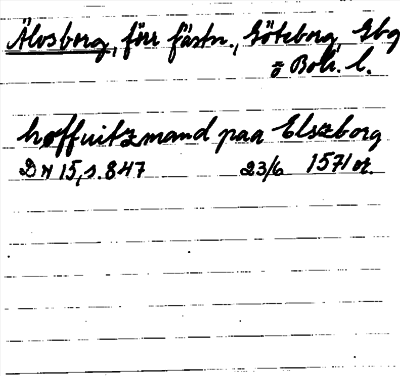 Älvsborg, förr fästn., Göteborg, Gbg
o Boh. l.
hoffuitzmand paa Elszborg
DN 15, s. 847 23/6 1571 or.